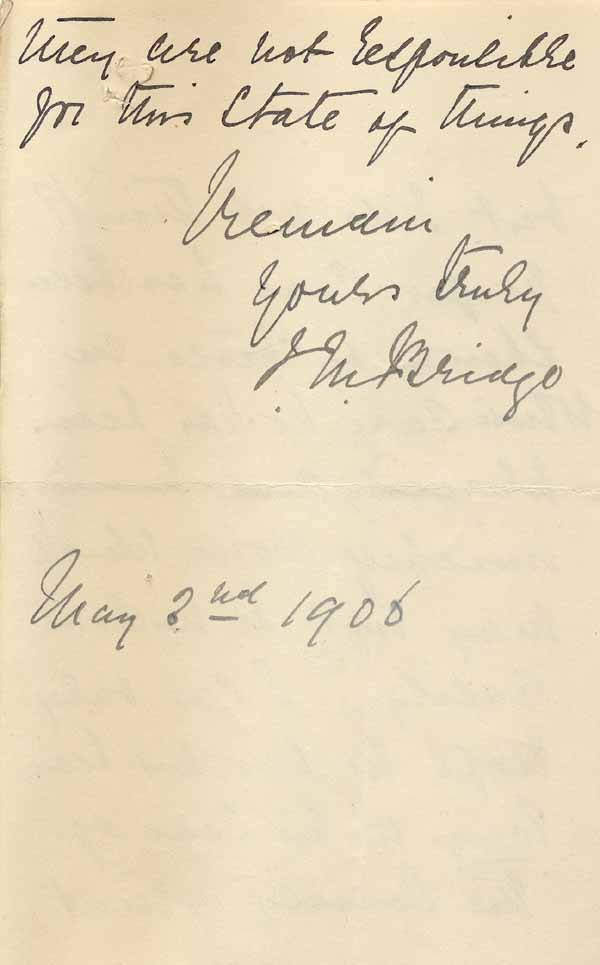 They are not responsible
for this State of things.
I remain
Yours truly
J. M. Bridge
May 2nd 1906